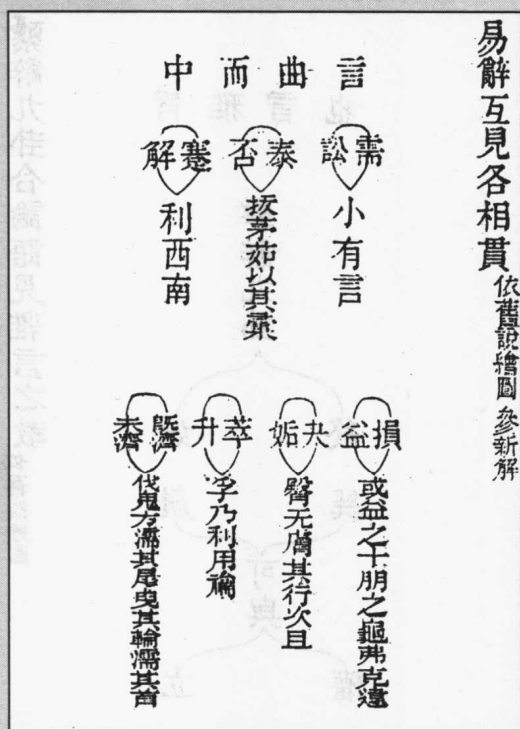 易辭互見各相貫 依舊說繪圖參新解
言曲而中
需訟
小有言
泰否
拔茅茹以其彙
蹇解
利西南
損益
或益之十朋之龜弗克違
夬姤
臀无膚其行次且
萃升
孚乃利用禴
既濟未濟
伐鬼方濡其尾曳其輪濡其首